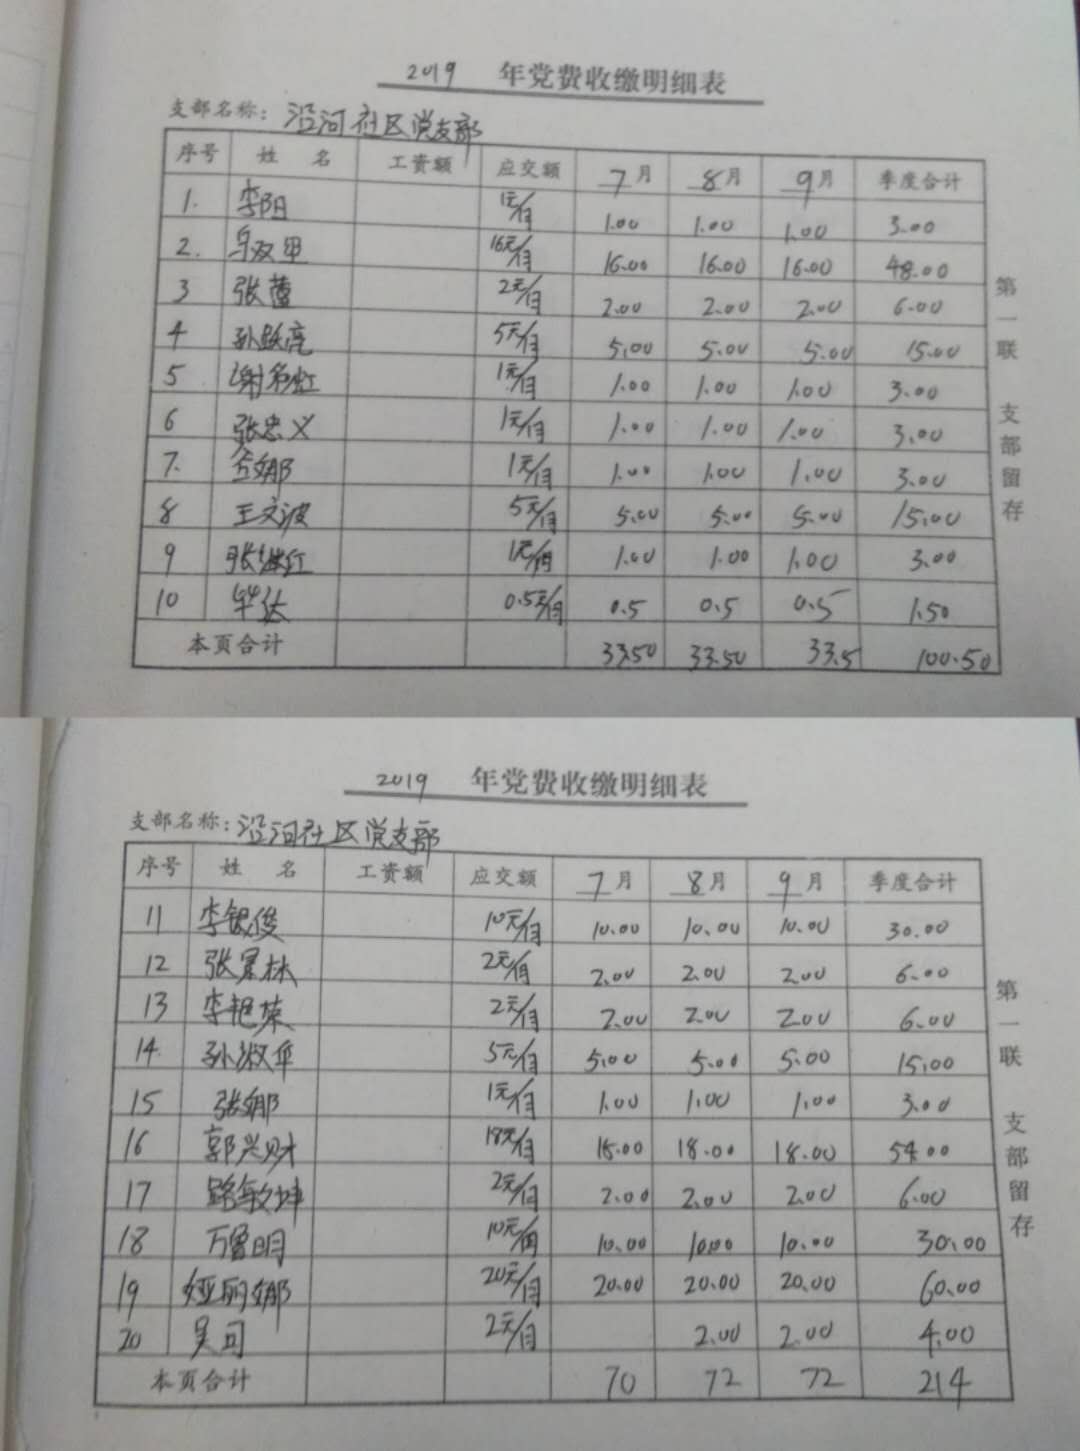 2019 年党费收缴明细表
支部名称：沿河社区党支部
序号 姓 名 工资额 应交额 7月 8月 9月 季度合计
1. 李阳 1元/月 1.00 1.00 1.00 3.00
2. 16元/月 16.00 16.00 16.00 48.00
3 张蕾 2元/月 2.00 2.00 2.00 6.00
4 孙跃亮 5元/月 5.00 5.00 5.00 15.00
5 1元/月 1.00 1.00 1.00 3.00
6 张忠义 1元/月 1.00 1.00 1.00 3.00
7. 1元/月 1.00 1.00 1.00 3.00
8 王文波 5元/月 5.00 5.00 5.00 15.00
9 1元/月 1.00 1.00 1.00 3.00
10 毕达 0.5元/月 0.5 0.5 0.5 1.50
本页合计 33.50 33.50 33.5 100.50
第一联 支部留存
2019 年党费收缴明细表
支部名称：沿河社区党支部
序号 姓 名 工资额 应交额 7月 8月 9月 季度合计
11 李银俊 10元/月 10.00 10.00 10.00 30.00
12 张景林 2元/月 2.00 2.00 2.00 6.00
13 李艳荣 2元/月 2.00 2.00 2.00 6.00
14 孙淑华 5元/月 5.00 5.00 5.00 15.00
15 张娜 1元/月 1.00 1.00 1.00 3.00
16 郭兴财 18元/月 18.00 18.00 18.00 54.00
17 路敏坤 2元/月 2.00 2.00 2.00 6.00
18 万鲁明 10元/月 10.00 10.00 10.00 30.00
19 娅丽娜 20元/月 20.00 20.00 20.00 60.00
20 吴同 2元/月 2.00 2.00 4.00
本页合计 70 72 72 214
第一联 支部留存